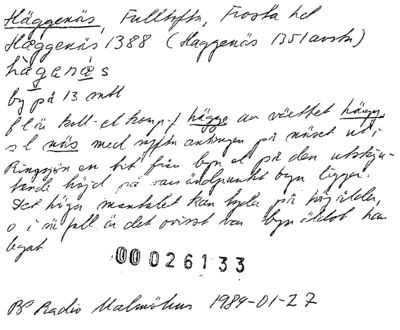 Häggenäs, Fulltofta, Frosta hd
Hæggenäs 1388 (Haggenäs 1351 avskr)
hàgənɑ̀s
by på 13 mtl
fl är koll- el komp-f hägge av växtet hägg,
sl näs med syftn antingen på näset ut i
Ringsjön en bit från byn el på den utskju-
tande höjd på vars ändpunkt byn ligger.
Det höga mantalet kan tyda på hög ålder,
o i så fall är det ovisst var byn äldst har
legat
00026133
BP Radio Malmöhus 1984-01-27